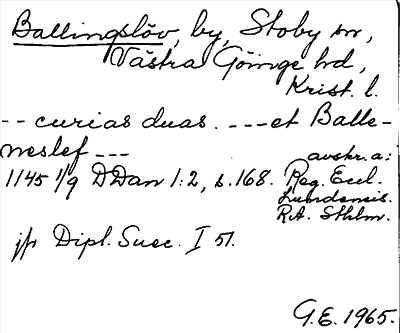 Ballingslöv, by, Stoby sn,
Västra Göinge hd,
Krist. l.
-- curias duas. --- et Balle-
neslef ---
avskr. a:
1145 1/9 DDan 1:2, s. 168. Reg. Eccl.
Lundensis.
RA. Sthlm.
jfr Dipl. Suec. I 51.
G.E. 1965.